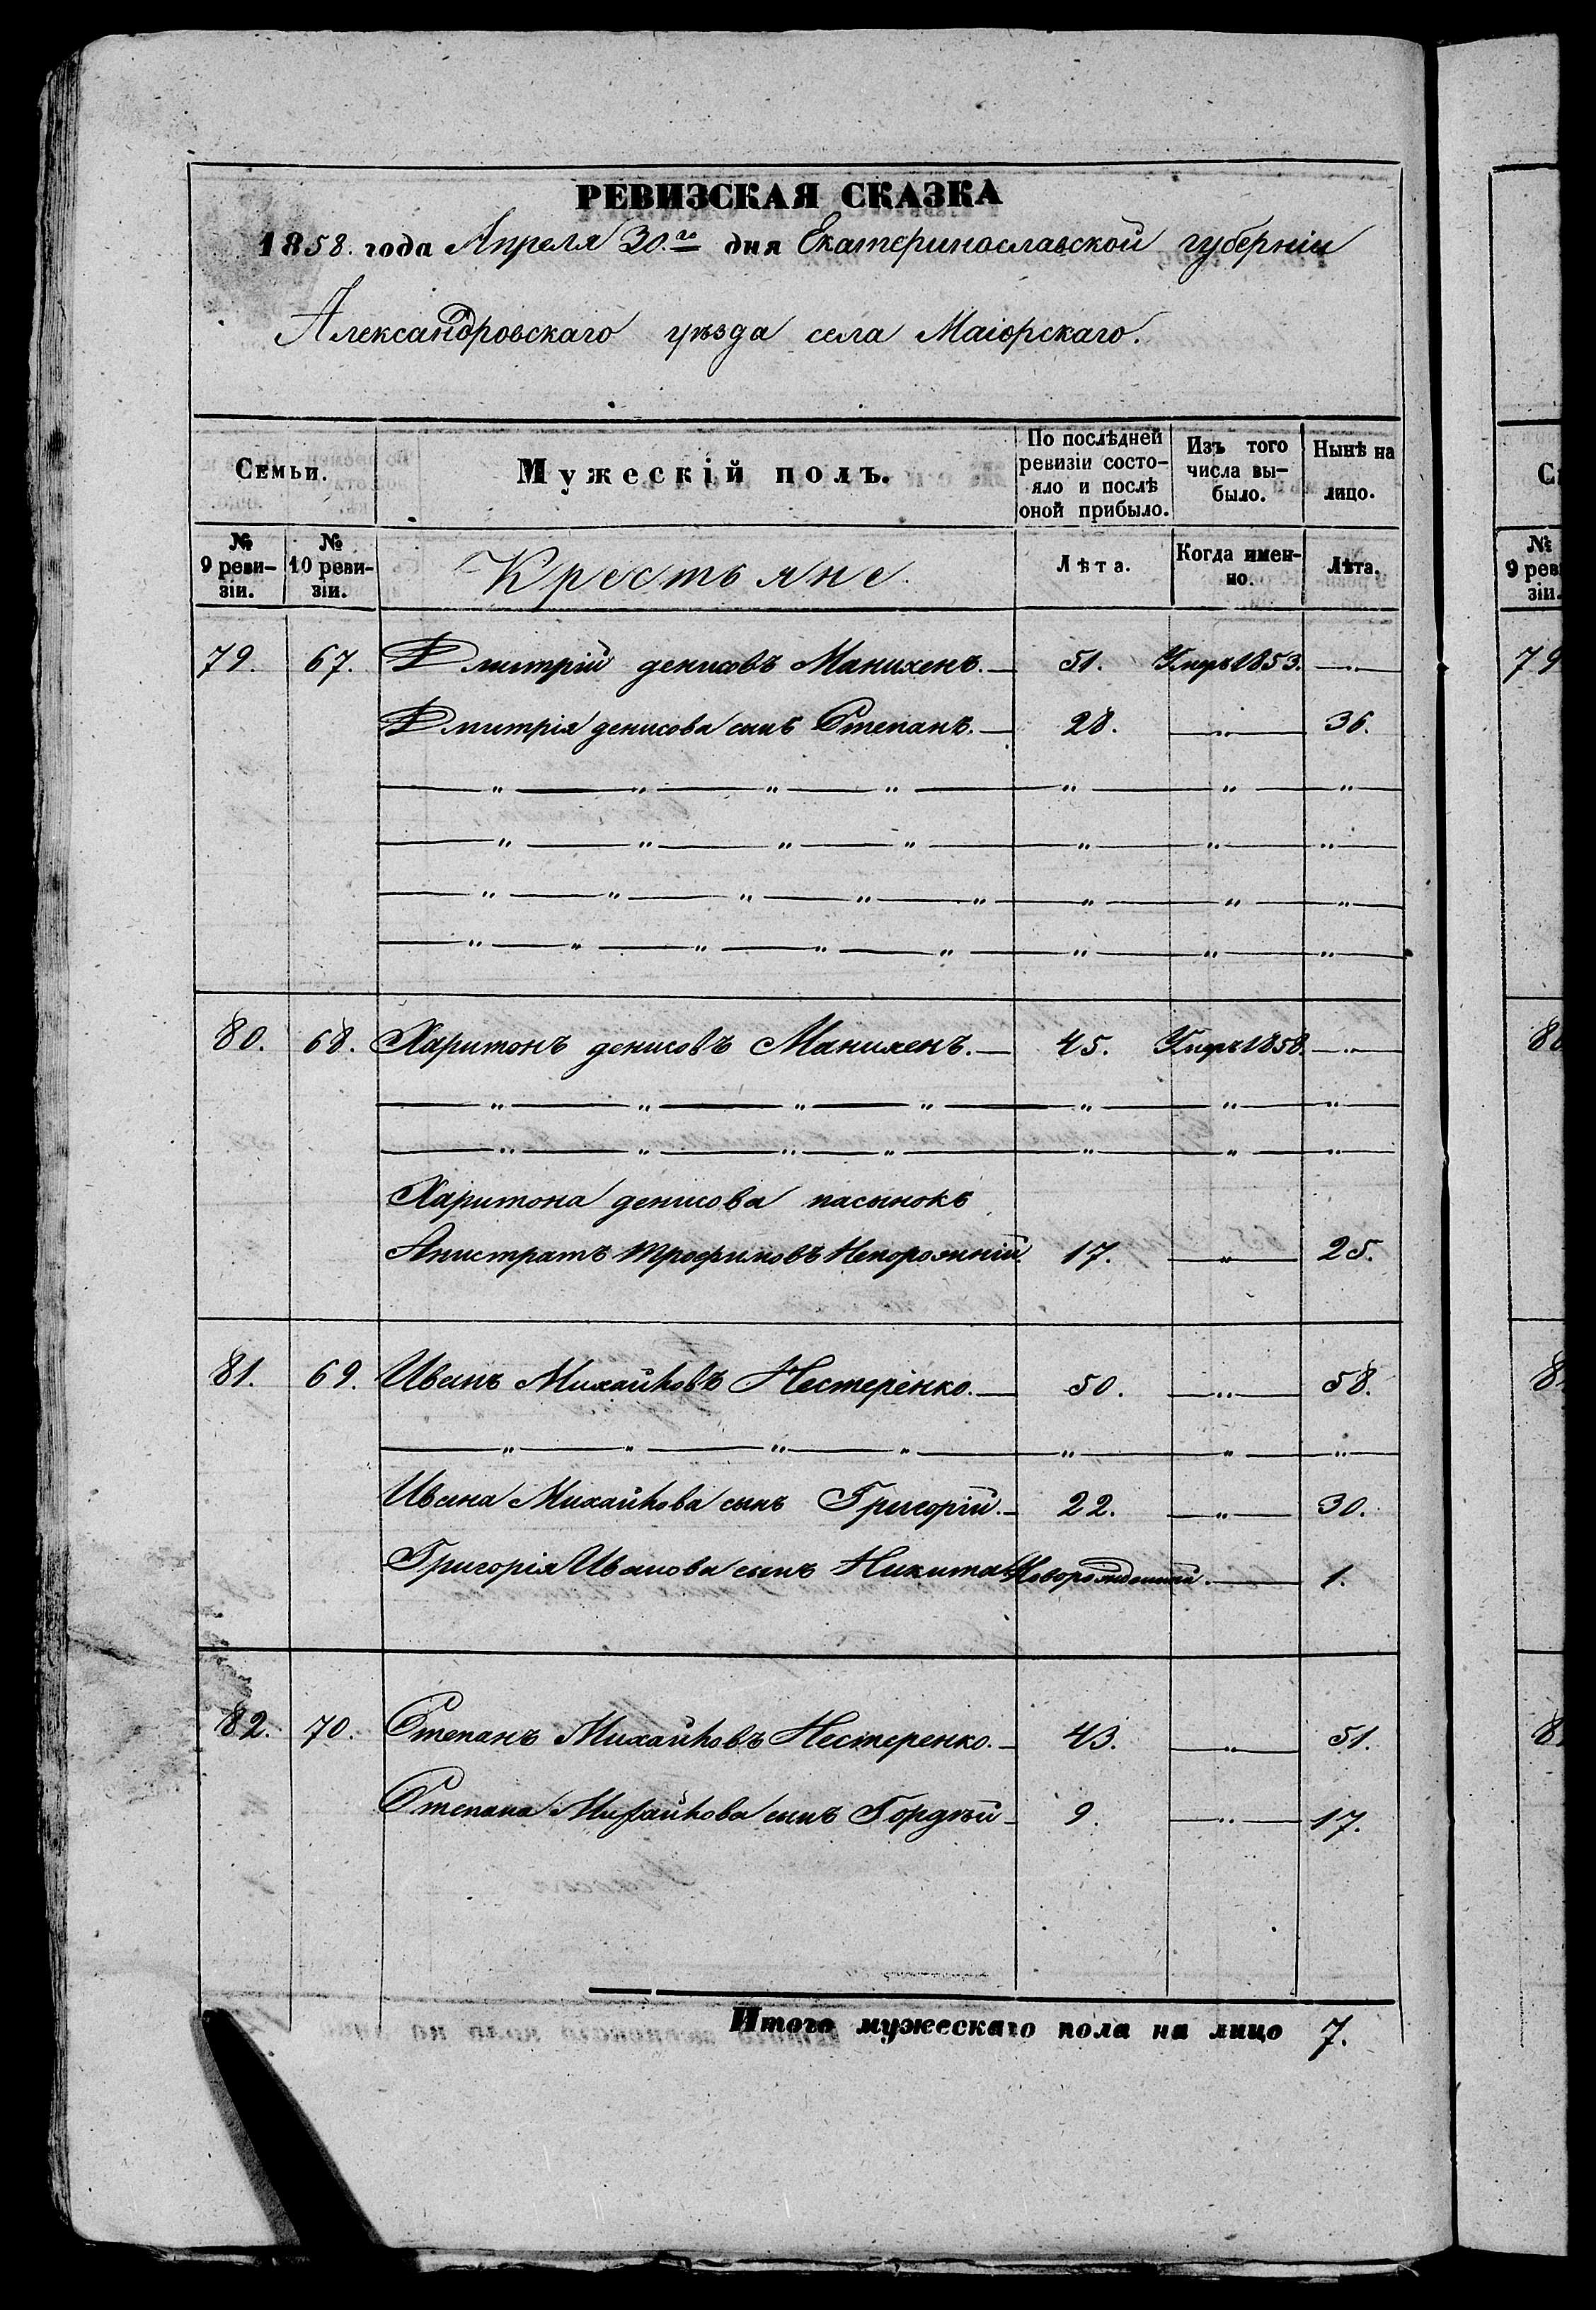 РЕВИЗСКАЯ СКАЗКА
1858. года Апреля 30.го дня Екатеринославской губерніи
Александровскаго уѣзда села Маіорскаго.
Семьи.
Мужескій полъ.
По послѣдней ревизіи состо-яло и послѣ оной прибыло.
Изъ того числа вы-было.
Нынѣ на лицо.
№ 9 реви-зіи.
№ 10 реви-зіи.
Крестьяне.
Лѣта.
Когда имен-но.
Лѣта.
79. 67. Дмитрій денисовъ Манихенъ. — 51. Умеръ 1853. — „ —
Дмитрія денисова сынъ Степанъ. — 28. — „ — 36.
80. 68. Харитонъ денисовъ Манихенъ. — 45. Умеръ 1858. — „ —
Харитона денисова пасынокъ
Анистратъ трофимовъ Непорожній. 17. — „ — 25.
81. 69. Иванъ Михайловъ Нестеренко. — 50. — „ — 58.
Ивана Михайлова сынъ Григорій. — 22. — „ — 30.
Григорія Иванова сынъ Никита Новорожденный. — 1.
82. 70. Степанъ Михайловъ Нестеренко. — 43. — „ — 51.
Степана Михайлова сынъ Гордѣй — 9. — „ — 17.
Итого мужескаго пола на лицо 7.